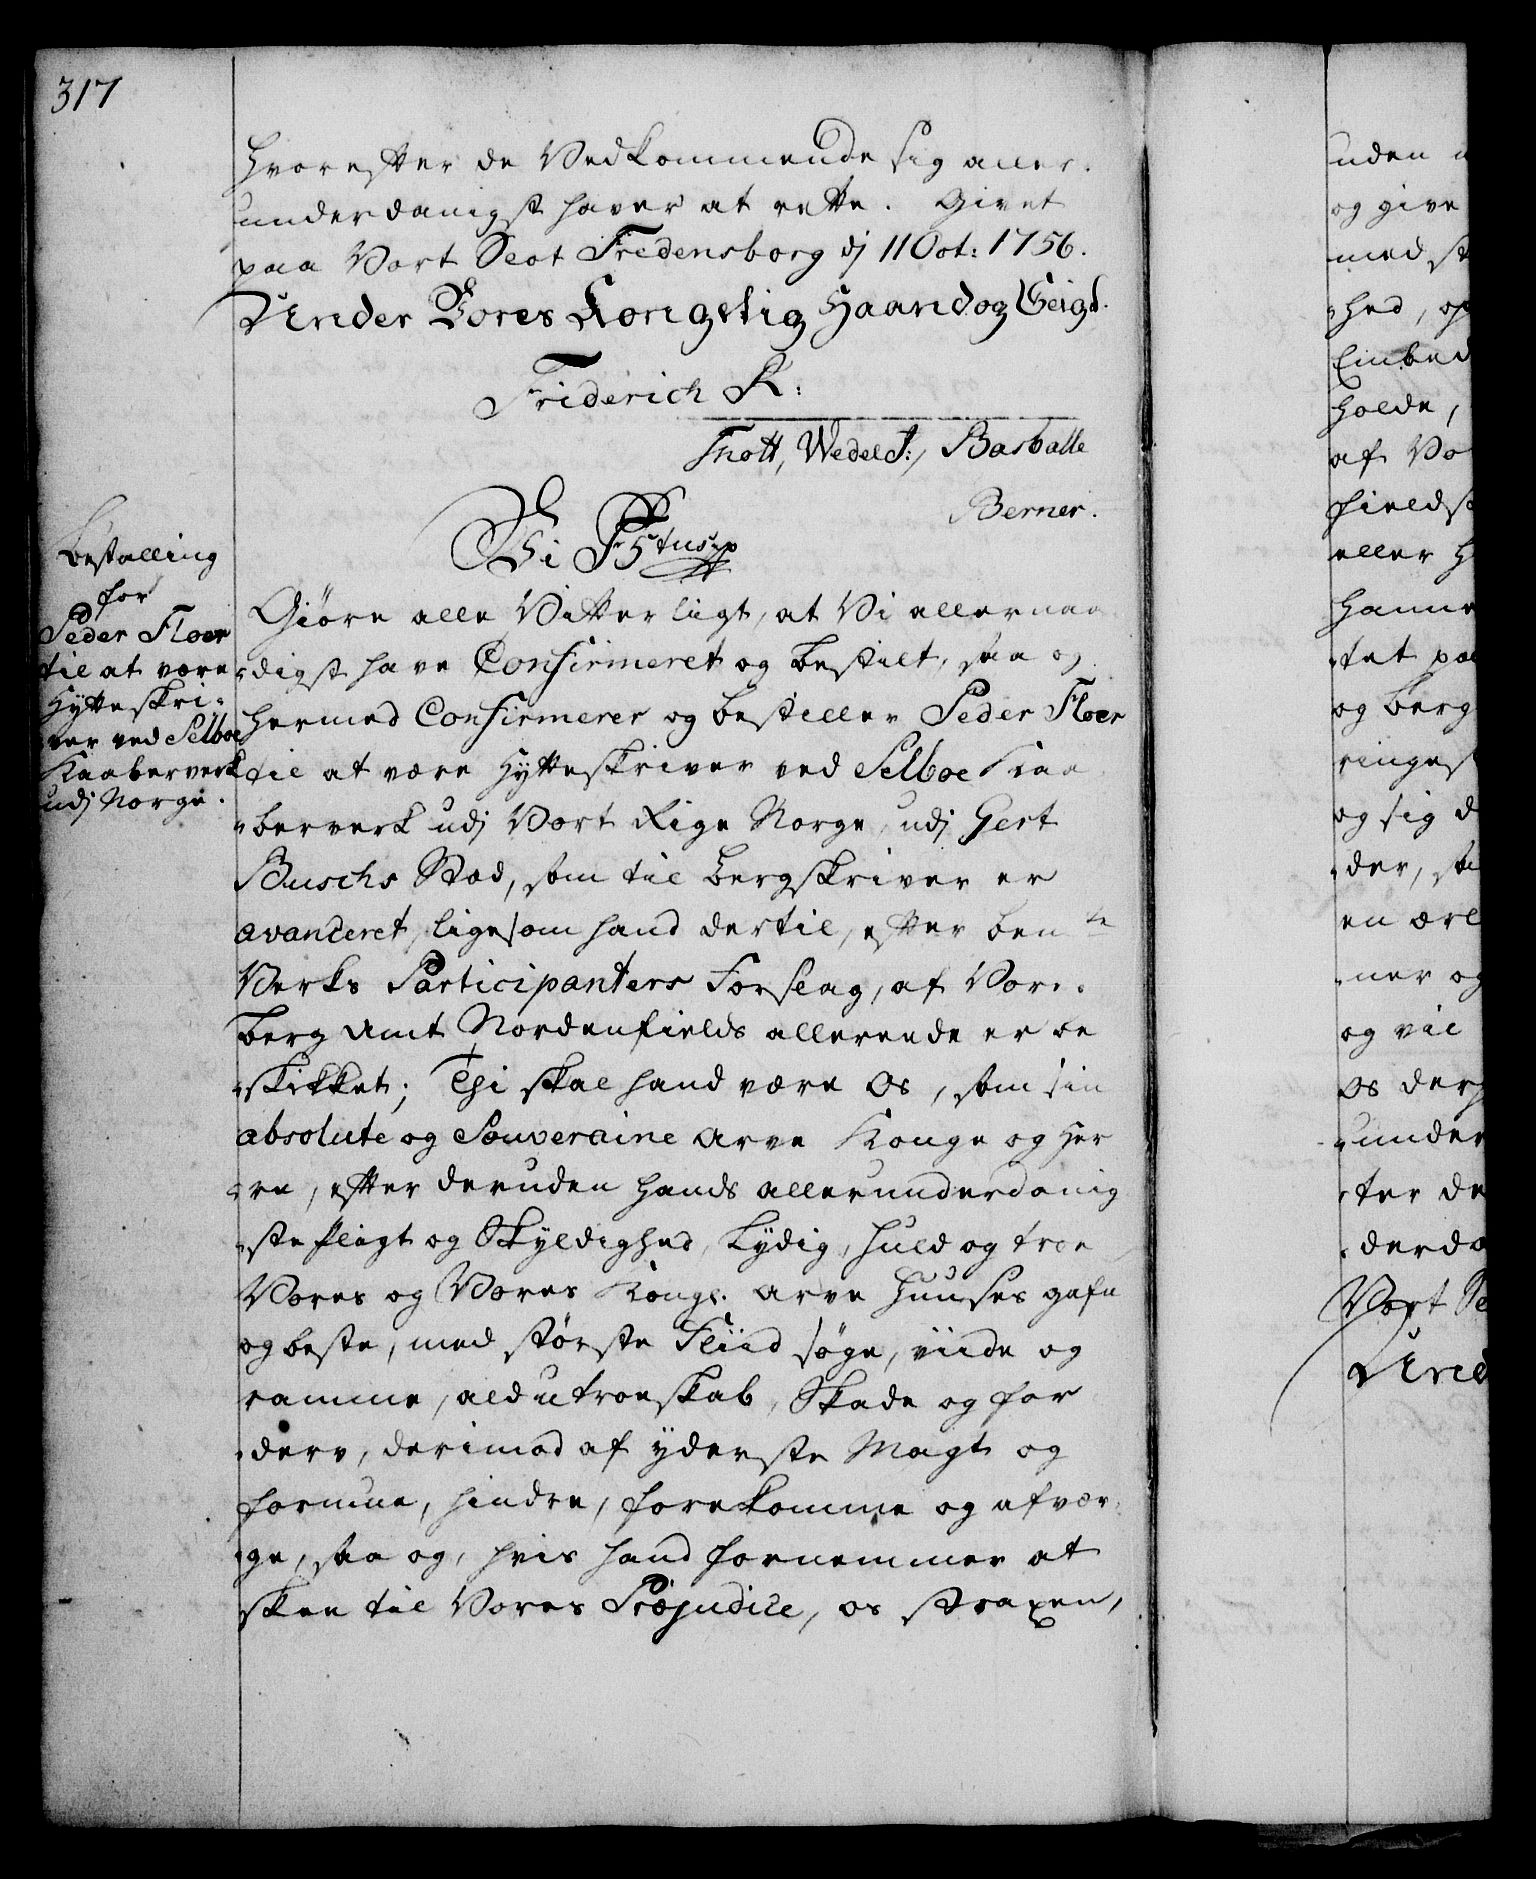 317
hvorefter de Vedkommende sig aller-
underdanigst haver at rette. Givet
paa Vort Slot Fredensborg dj 11 Oct: 1756.
Under Vores Kongelig Haand og Seigl.
Friderich R:
Thott, Wedel J:, Barballe
Berner.
Bestalling
for
Peder Floer
til at være
Hytteskri-
ver ved Selboe
Kaaberverk
udj Norge.
Vi Fr 5tus
Giöre alle Vitterligt, at Vi allernaa
-digst have Confirmeret og bestilt, saa og
hermed Confirmerer og bestiller Peder Floer
til at være Hytteskriver ved Selboe Kaa
-berverk udj Vort Rige Norge, udj Gert
Buschs Stad, som til Bergskriver er
avanceret, ligesom hand dertil, efter bemte
Verks Participanters Forslag, af Vore
Berg Amt Nordenfields allerede er be
-skikket; Thi skal hand være Os, som sin
absolute og Souveraine Arve Konge og Her
-re, efter deruden hands allerunderdanig
-ste Pligt og Skyldighed, Lydig, huld og troe
Vores og Vores Kongl. Arve Huuses gafn
og beste, med største Fliid søge, viide og
ramme, ald utroeskab, Skade og for
-derv, derimod af yderste Magt og
formue, hindre, forekomme og afvær-
-ge, saa og, hvis hand fornemmer at
skee til Vores Præjudice, os straxen,
uden
og give
med st
-hed, op
Embed
holde,
af Vo
fieldst
eller H
hanne
-tet paa
og berg
ringest
og sig d
-der, sa
en ærl
-ner og
og vil
os derf
-under
-ter de
-derda
Vort Sl
Und